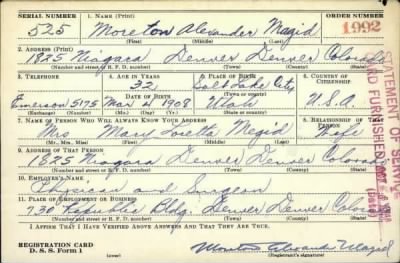 SERIAL NUMBER 1. NAME (Print) ORDER NUMBER
525 Moreton Alexander Magid 1992
(First) (Middle) (Last)
2. ADDRESS (Print)
1825 Niagara Denver Denver Colorado
(Number and street or R. F. D. number) (Town) (County) (State)
3. TELEPHONE 4. AGE IN YEARS 5. PLACE OF BIRTH 6. COUNTRY OF CITIZENSHIP
32 Salt Lake City
DATE OF BIRTH (Town or county)
Emerson 5175 Mar 4 1908 Utah U.S.A.
(Exchange) (Number) (Mo.) (Day) (Yr.) (State or country)
7. NAME OF PERSON WHO WILL ALWAYS KNOW YOUR ADDRESS 8. RELATIONSHIP OF THAT PERSON
Mrs Mary Loretta Magid Wife
(Mr., Mrs., Miss) (First) (Middle) (Last)
9. ADDRESS OF THAT PERSON
1825 Niagara Denver Denver Colorado
(Number and street or R. F. D. number) (Town) (County) (State)
10. EMPLOYER'S NAME
Physican and Surgeon
11. PLACE OF EMPLOYMENT OR BUSINESS
730 Republic Bldg. Denver Denver Colo
(Number and street or R. F. D. number) (Town) (County) (State)
I AFFIRM THAT I HAVE VERIFIED ABOVE ANSWERS AND THAT THEY ARE TRUE.
REGISTRATION CARD
D. S. S. Form 1 (over) Moreton Alexander Magid
(Registrant's signature)
STATEMENT OF SERVICE
CARD FURNISHED
(Date)